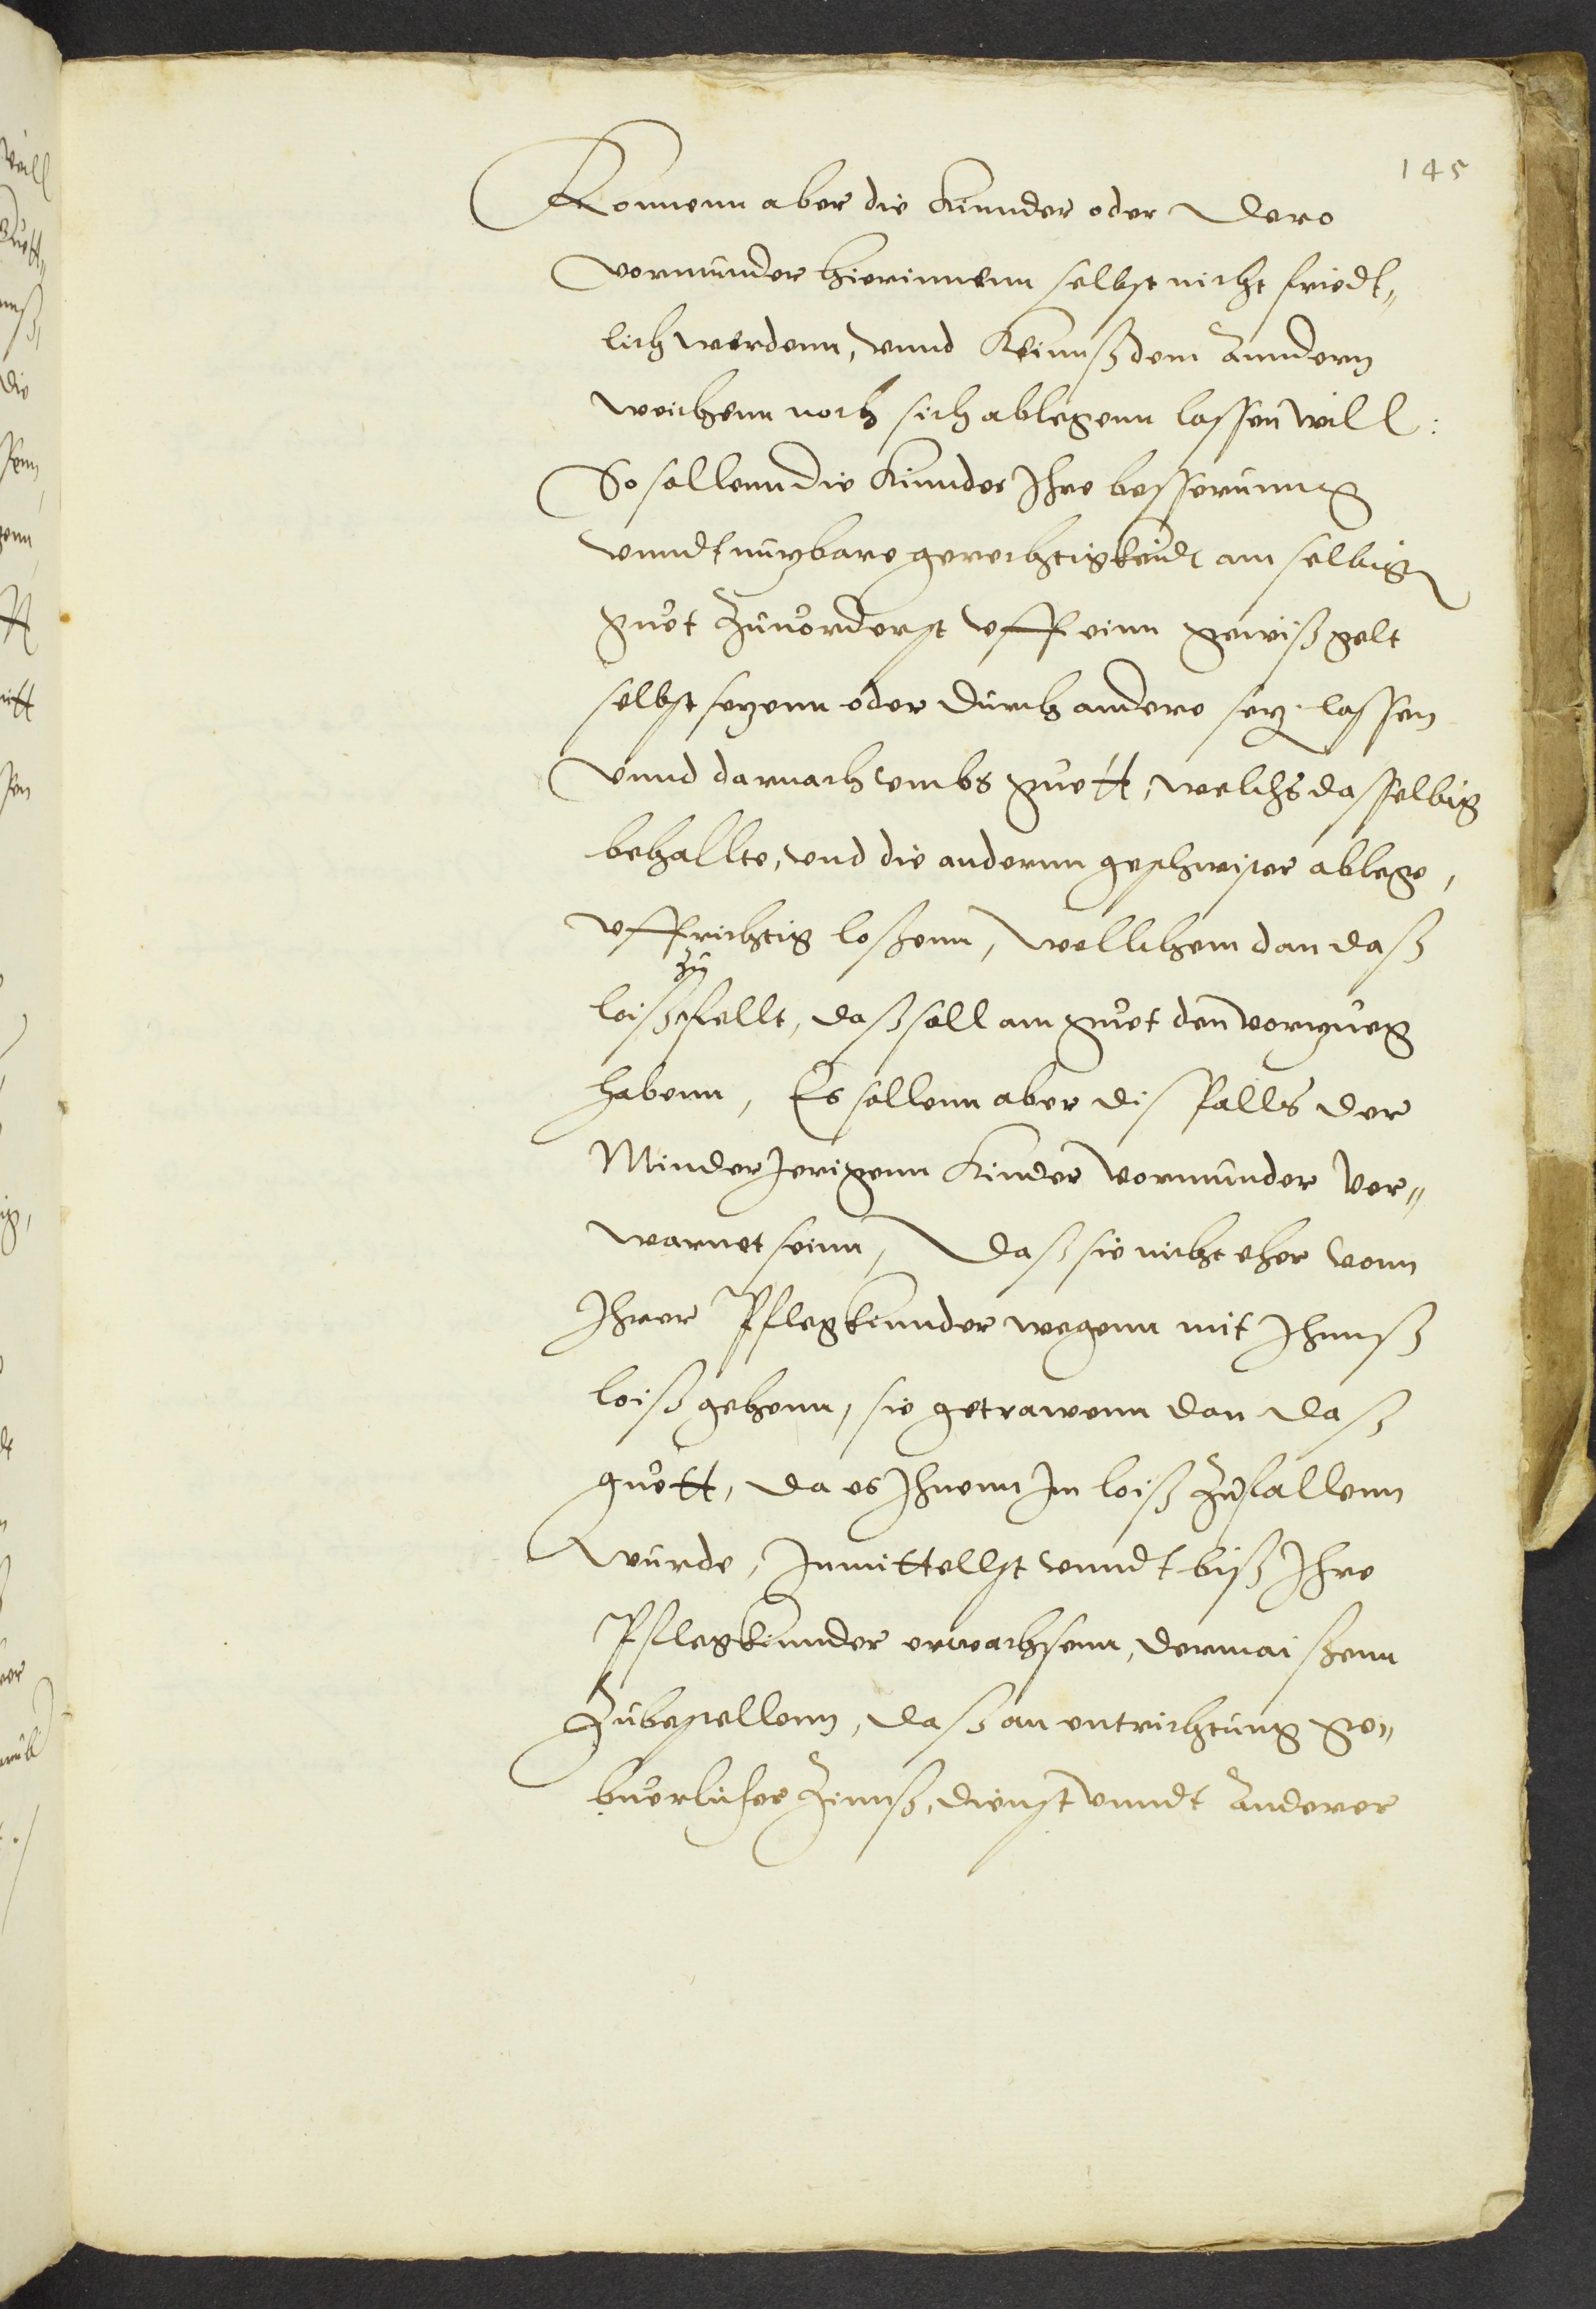 145
Konnenn aber die Kinnder oder dero
vormunder hierinnenn selbst nicht friedt„
lich werdenn, vnnd Keinnß dem Anndern
weichenn noch sich ablegenn lassen will:
So sollenn die Kinnder Ihre besserunng
vnndt nuzbare gerechtigkeidt am selbig
guet Zuuorderst vff einn gewiß gelt
selbst sezenn oder durch andere sez. lassen
vnnd darnach vmbs guett, welchs dasselbig
behallte, vnd die andernn geschwister ablege,
vffrichtig loßenn, wellchem dan daß
zu
loiß fellt, daß soll am guet den vorzueg
habenn, Es sollenn aber dis falls der
Minder Jerigenn Kinder vormunder ver„
warnet seinn, daß sie nicht eher vonn
Ihrer Pflegkinnder wegenn mit Ihnnß
loiß gehenn, sie getrawenn dan daß
guett, da es Ihnenn Im loiß Zufallenn
wurde, Inmittellst vnndt biß Ihre
Pflegkinnder erwachsenn, dermaißenn
Zubestellenn, daß an entrichtung ge„
buerlicher Zinnß, dienst vnndt Anderer